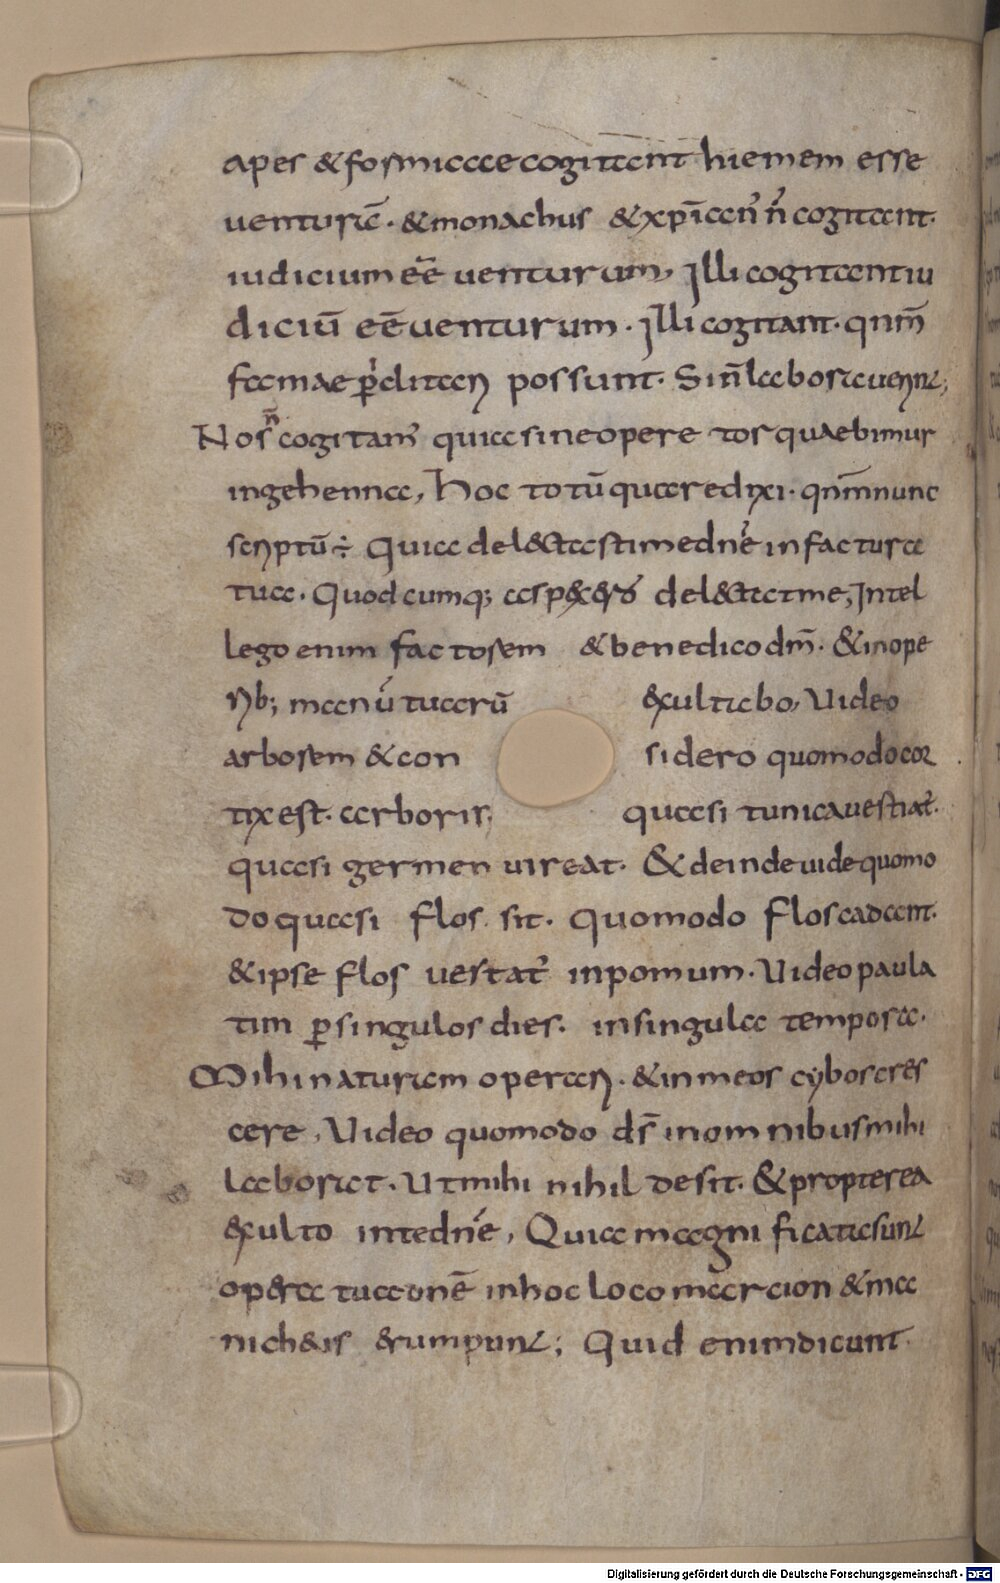 apes & formicae cogitant hiemem esse
venturā. & monachus & xp̄ian' n̄ cogitant.
iudicium eē̄ venturum, Illi cogitant iu
diciū eē venturum. Illi cogitant. qnm̄
fame p̄clitari possunt. Si n̄ laboraverint;
Nos n̄ cogitam' quia sine opere torquaebimur
in gehenna, Hoc totū quare dixi. qnm̄ nunc
scriptū ÷ Quia delectasti me dnē in factura
tua. Quodcumq; aspexero delectat me, Intel
lego enim factorem & benedico dm̄. & in ope
rib; manuū tuarū exultabo, Video
arborem & con sidero quomodo cor
tix est. arboris, quasi tunica vestiat'.
quasi germen vireat. & deinde vide quomo
do quasi flos sit. quomodo flos cadant.
& ipse flos vestat' in pomum. Video paula
tim p̄ singulos dies. in singula tempora.
Mihi naturam operari. & in meos cybos cres
cere, Video quomodo ds̄ in omnibus mihi
laborat. Ut mihi nihil desit. & propterea
exulto in te dnē, Quia magnificata sunt
opera tua dnē in hoc loco marcion & ma
nicheis erumpunt; Quid enim dicunt
Digitalisierung gefördert durch die Deutsche Forschungsgemeinschaft - DFG